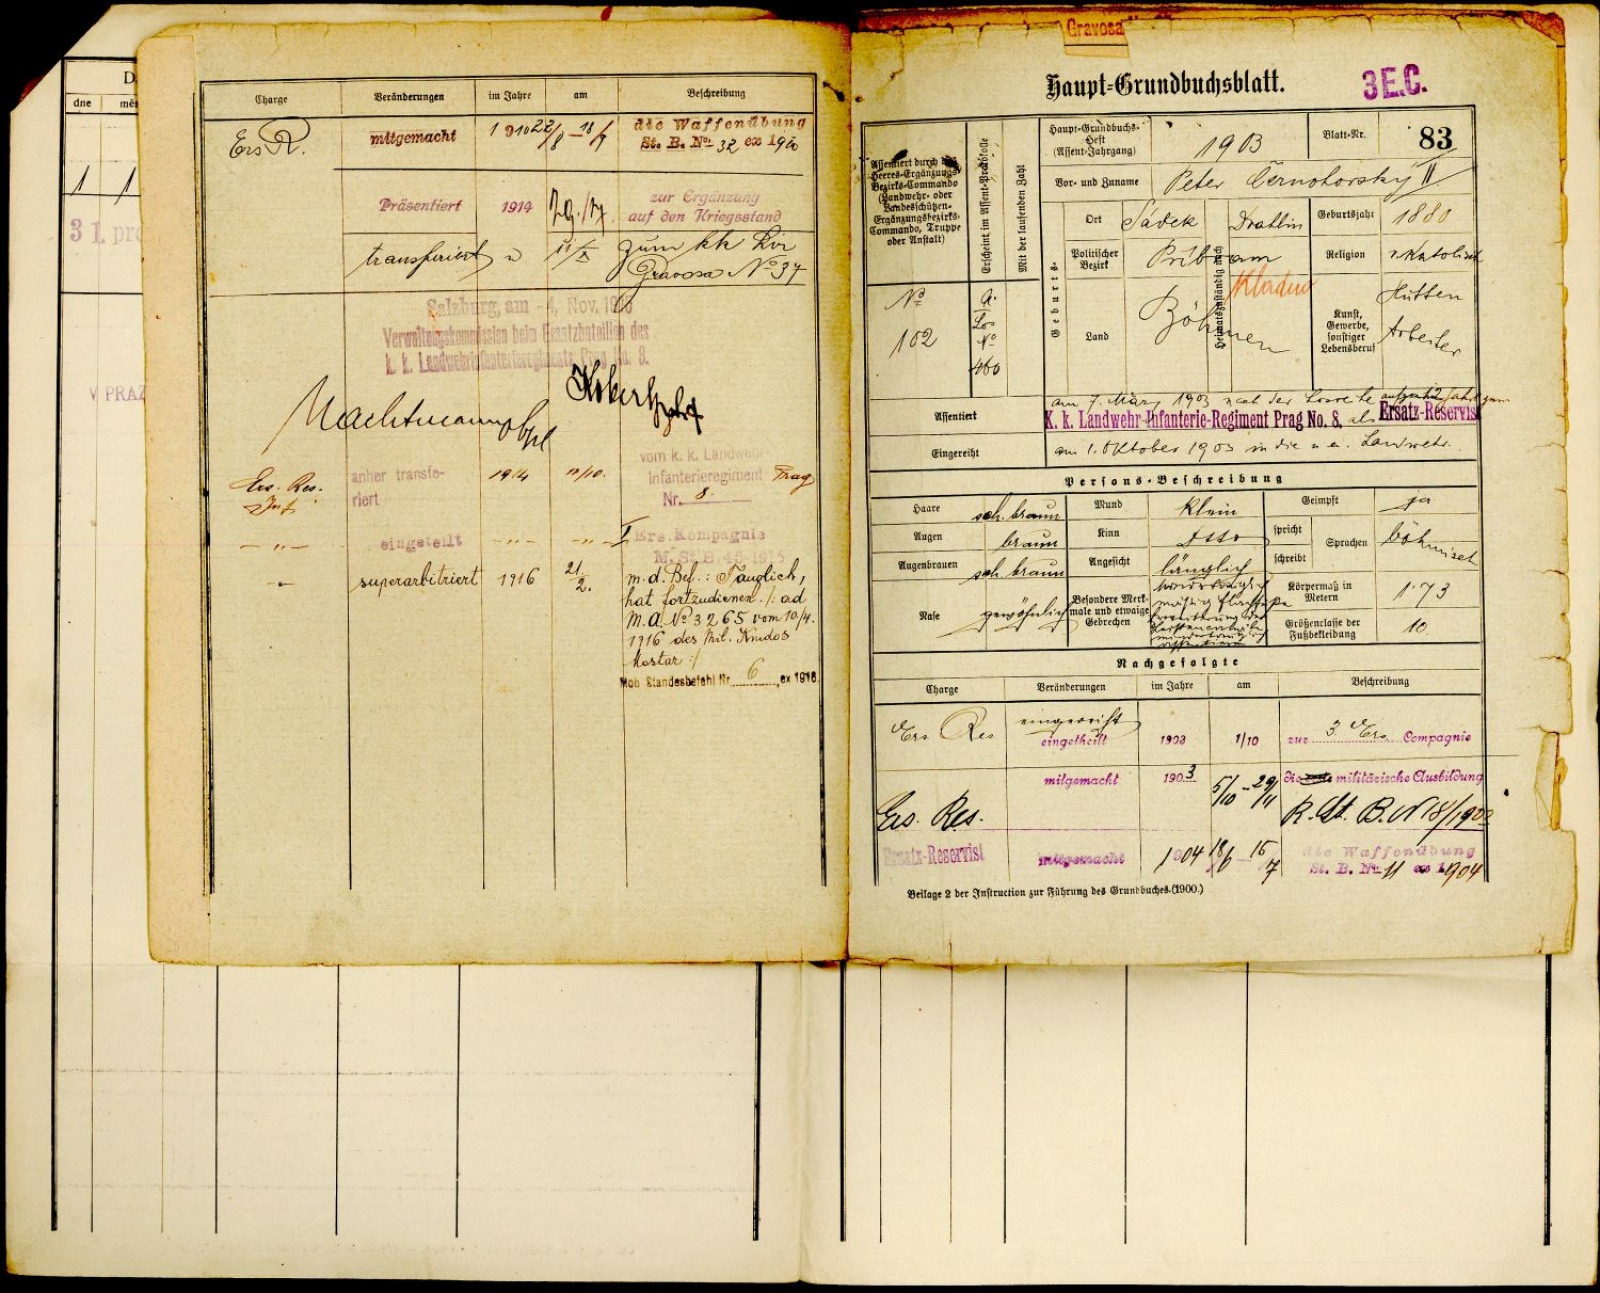 D
dne
měs
1
1
31. pro
V PRAZ
Charge
Veränderungen
im Jahre
am
Beschreibung
Ers R.
mitgemacht
1910
22/8 - 18/9
die Waffenübung
St. B. No 32 ex 1910
Präsentiert
1914
zur Ergänzung
auf den Kriegsstand
transferiert
zum kk Lir
Gravosa No 37
Salzburg, am - 4. Nov. 1916
Verwaltungskommission beim Ersatzbataillon des
k. k. Landwehrinfanterieregiments Prag No. 8.
Ers. Res.
Inf
anher transfe-
riert
1914
11/10.
vom k. k. Landwehr-
Infanterieregiment Prag
Nr. 8.
- " -
eingeteilt
- " -
- " -
I Ers. Kompagnie
M. St. B. 45-1915
superarbitriert
1916
21/2.
m. d. Bef.: Tauglich,
hat fortzudienen. /: ad
M. A. No 3265 vom 10/4.
1916 des Mil. Kmdos
Mostar :/
Mob Standesbefehl Nr. 6, ex 1916.
Gravosa
Haupt-Grundbuchsblatt.
3 E.C.
Assentiert durch das
Heeres-Ergänzungs-
Bezirks-Commando
(Landwehr- oder
Landesschützen-
Ergänzungsbezirks-
Commando, Truppe
oder Anstalt)
Erscheint im Assent-Protokolle
Mit der laufenden Zahl
Haupt-Grundbuchs-
Heft
(Assent-Jahrgang)
1903
Blatt-Nr.
83
Vor- und Zuname
Peter Černohorsky II
Geburts-
Ort
Sádek
Heimatszuständig nach
Drahlin
Geburtsjahr
1880
Politischer
Bezirk
Příbram
Kladno
Religion
r. Katolisch
Land
Böhmen
Kunst,
Gewerbe,
sonstiger
Lebensberuf
Hütten
Arbeiter
No
102
a.
Los
No
460
Assentiert
am 7. März 1903 nach der Losreihe auf zwölf Jahre zum
K. k. Landwehr-Infanterie-Regiment Prag No. 8. als Ersatz-Reservist
Eingereiht
am 1. Oktober 1903 in die n. a. Landwehr.
Persons-Beschreibung
Haare
sch. braun
Mund
klein
Geimpft
ja
Augen
braun
Kinn
dtto
spricht
schreibt
Sprachen
böhmisch
Augenbrauen
sch. braun
Angesicht
länglich
Nase
gewöhnlich
Besondere Merk-
male und etwaige
Gebrechen
Körpermaß in
Metern
1·73
Größenclasse der
Fußbekleidung
10
Nachgefolgte
Charge
Veränderungen
im Jahre
am
Beschreibung
Ers Res
eingereiht
eingetheilt
1903
1/10
zur 3. Ers. Compagnie
Ers. Res.
mitgemacht
1903
5/10 - 29/11
die militärische Ausbildung
R. St. B. N 18/1903
Ersatz-Reservist
mitgemacht
1904
18/6 - 15/7
die Waffenübung
St. B. No 11 ex 1904
Beilage 2 der Instruction zur Führung des Grundbuches (1900.)